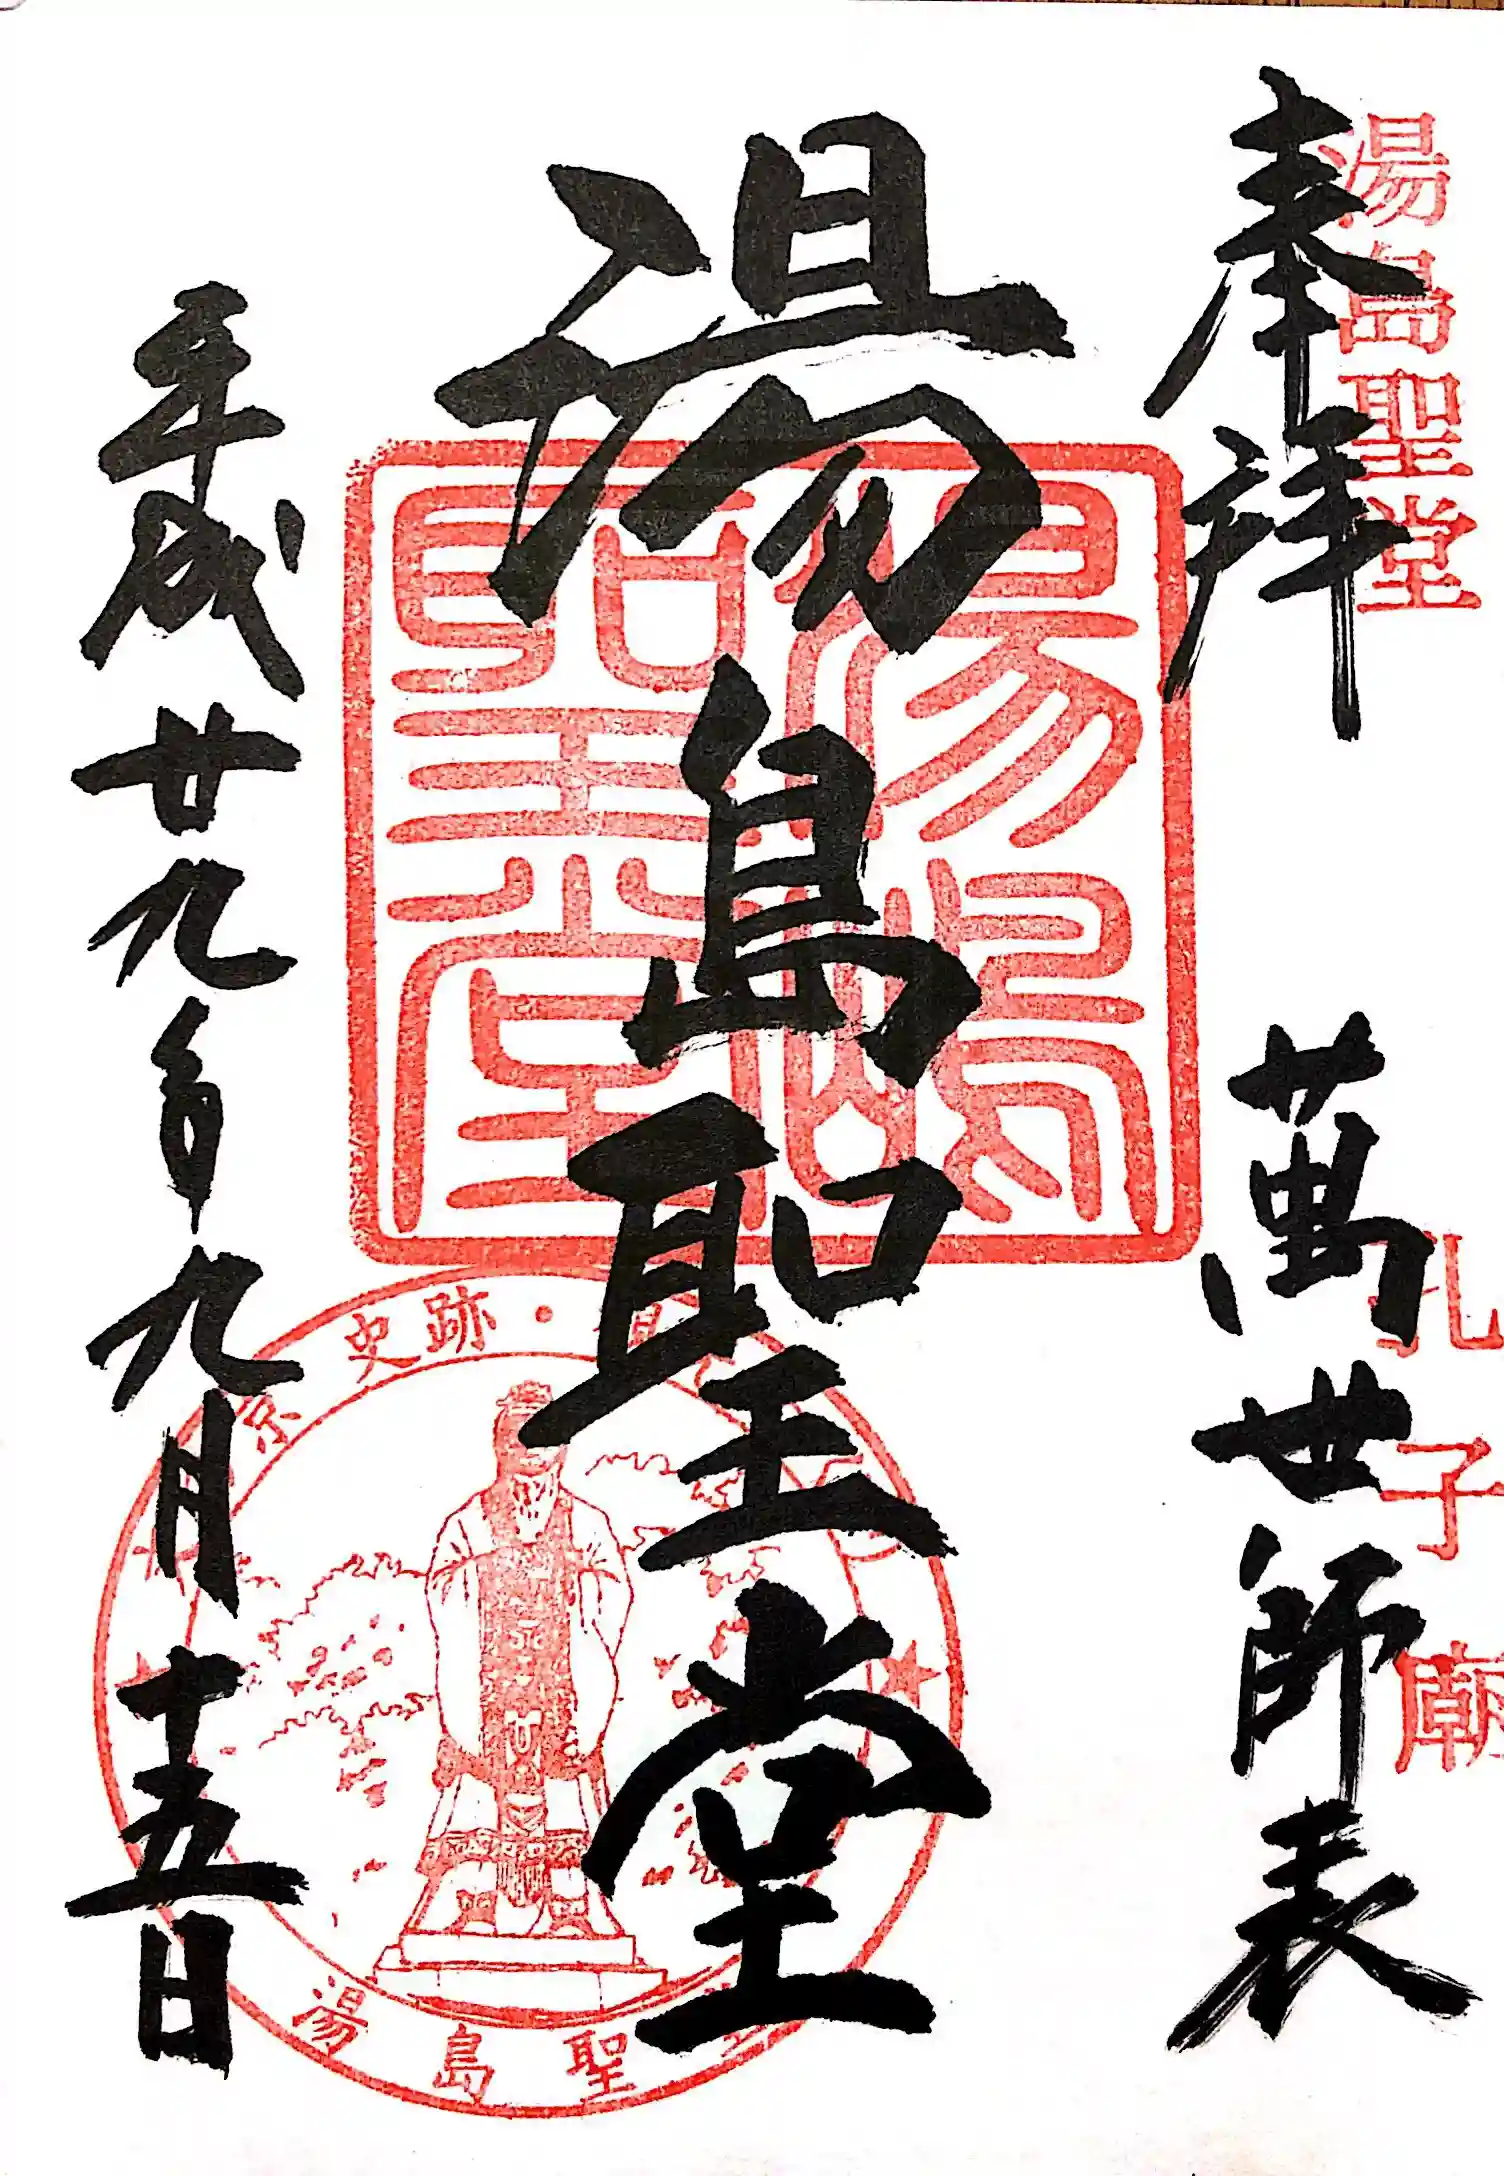 湯島聖堂
奉拝
萬世師表
孔子廟
湯島聖堂
湯島聖堂
平成廿九年九月十五日
京
史跡・
湯島聖